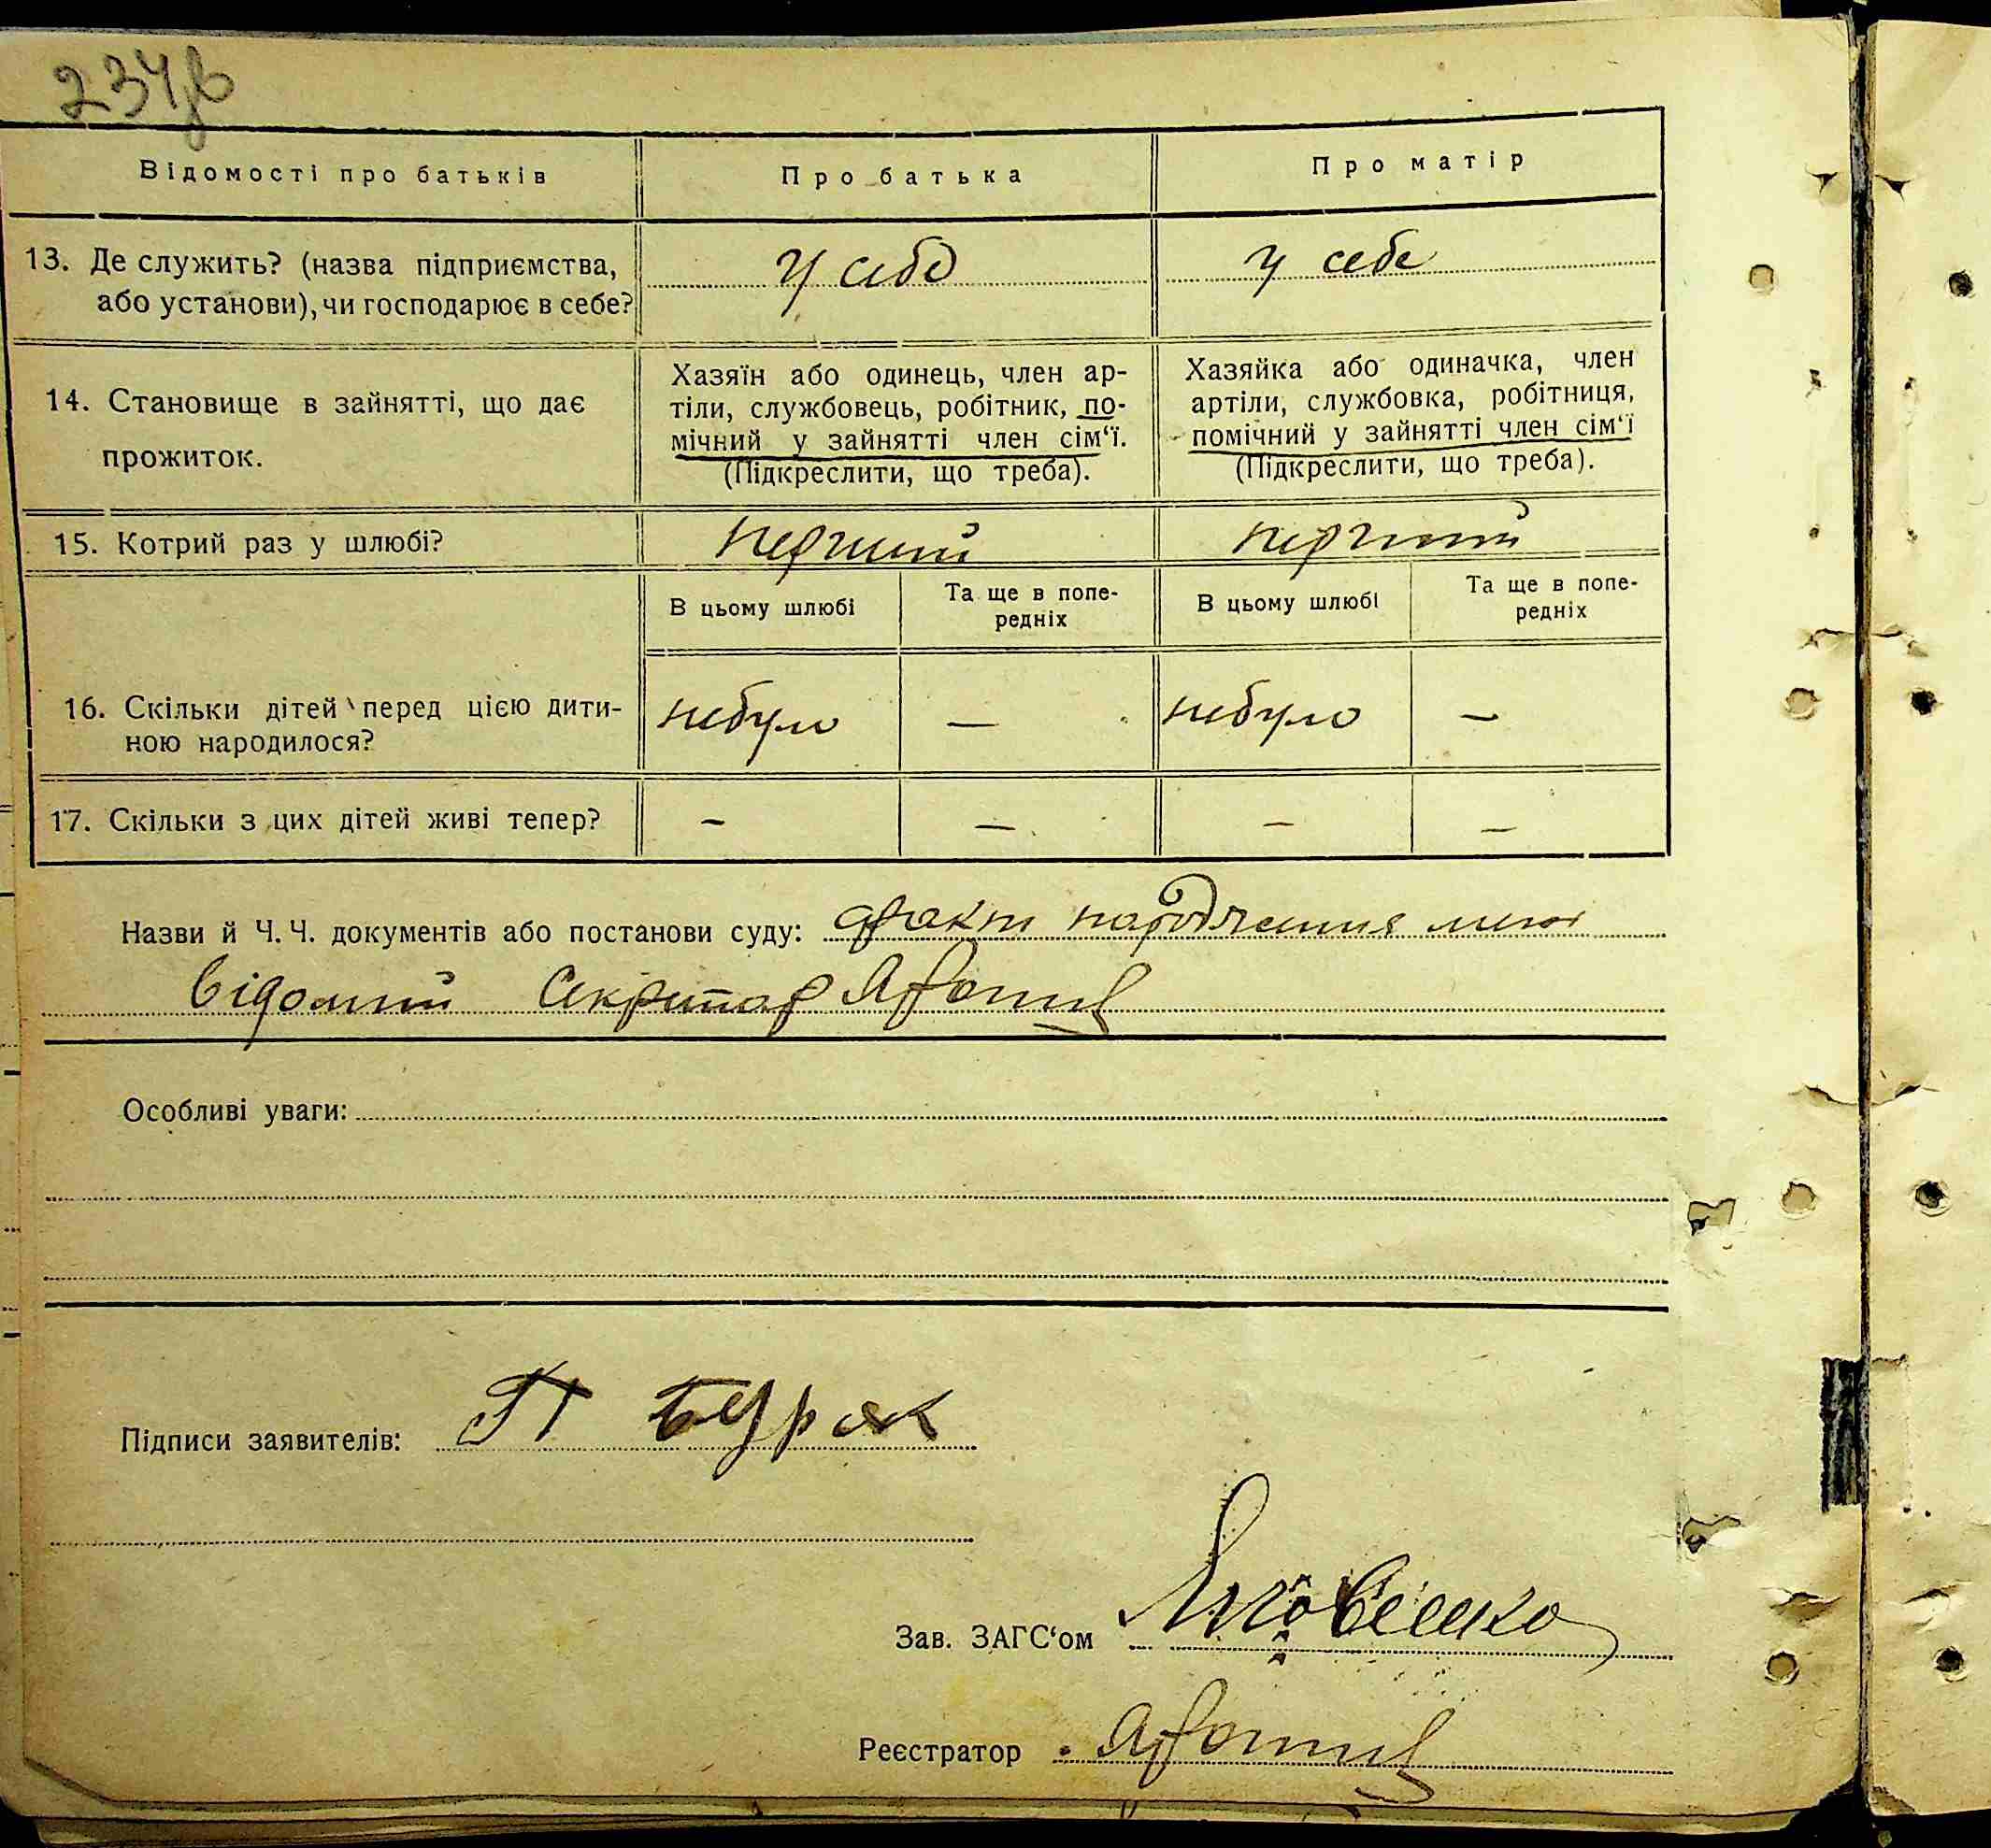 234
Відомості про батьків
Про батька
Про матір
13. Де служить? (назва підприємства,
або установи), чи господарює в себе?
У себе
У себе
14. Становище в зайнятті, що дає
прожиток.
Хазяїн або одинець, член ар-
тіли, службовець, робітник, по-
мічний у зайнятті член сім‘ї.
(Підкреслити, що треба).
Хазяйка або одиначка, член
артіли, службовка, робітниця,
помічний у зайнятті член сім‘ї
(Підкреслити, що треба).
15. Котрий раз у шлюбі?
перший
перший
В цьому шлюбі
Та ще в попе-
редніх
В цьому шлюбі
Та ще в попе-
редніх
16. Скільки дітей перед цією дити-
ною народилося?
небуло
—
небуло
—
17. Скільки з цих дітей живі тепер?
—
—
—
—
Назви й Ч. Ч. документів або постанови суду: факт народження мені
відомий Секретар
Особливі уваги:
Підписи заявителів: П Буряк
Зав. ЗАГС‘ом Яковенко
Реєстратор